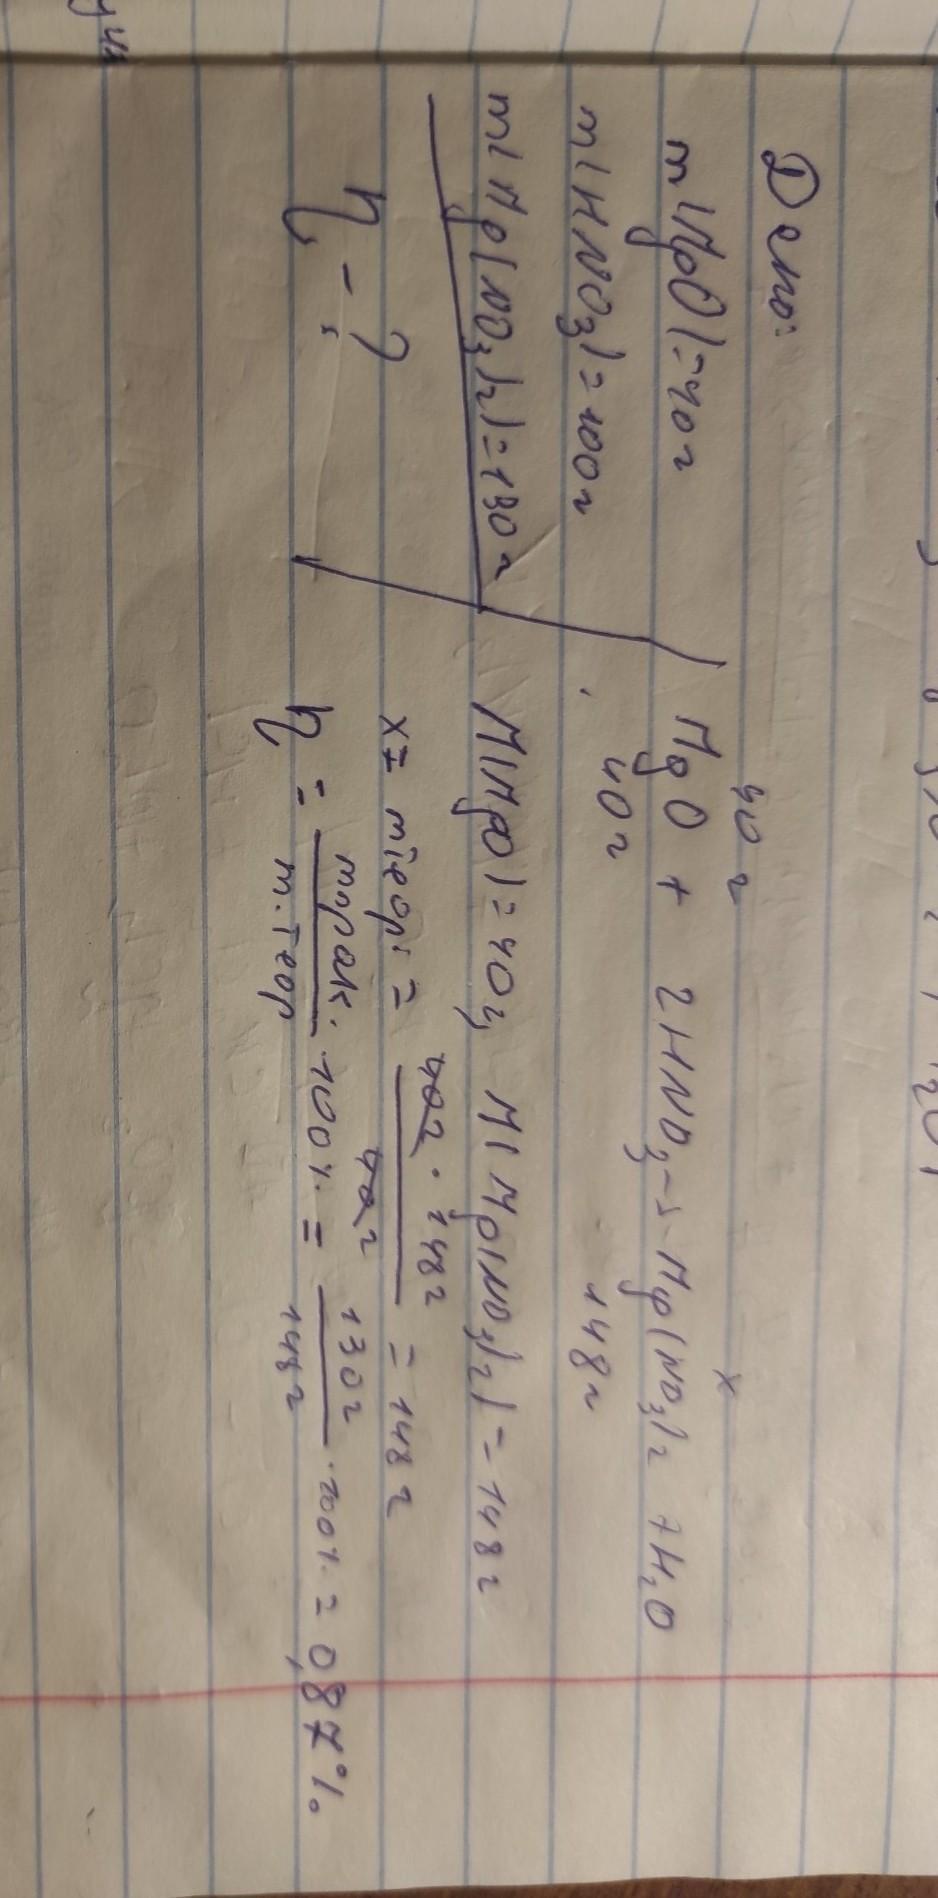 Дано:
m(MgO)=40г
m(HNO3)=100г
m(Mg(NO3)2)=130г
η - ?
40г x
MgO + 2HNO3 → Mg(NO3)2 + H2O
40г 148г
M(MgO)=40, M(Mg(NO3)2)=148г
x= mтеор. = 40г · 148г / 40г = 148г
η = mпрак. / m.теор · 100% = 130г / 148г · 100% = 0,87%